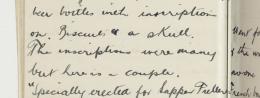 beer bottles with inscription
on. Biscuits & a skull.
The inscriptions were many
but here is a couple.
"Specially erected for Sapper